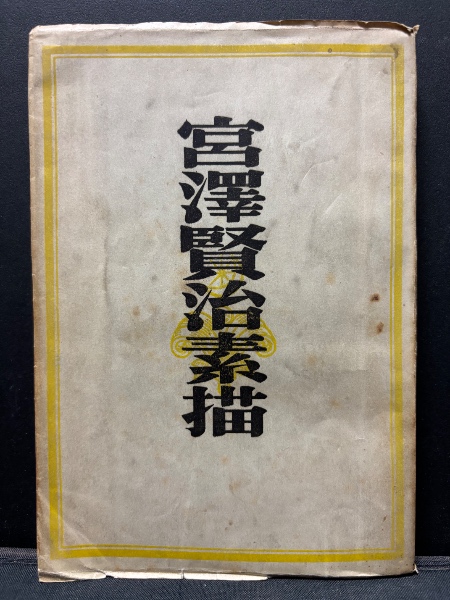 宮澤賢治素描